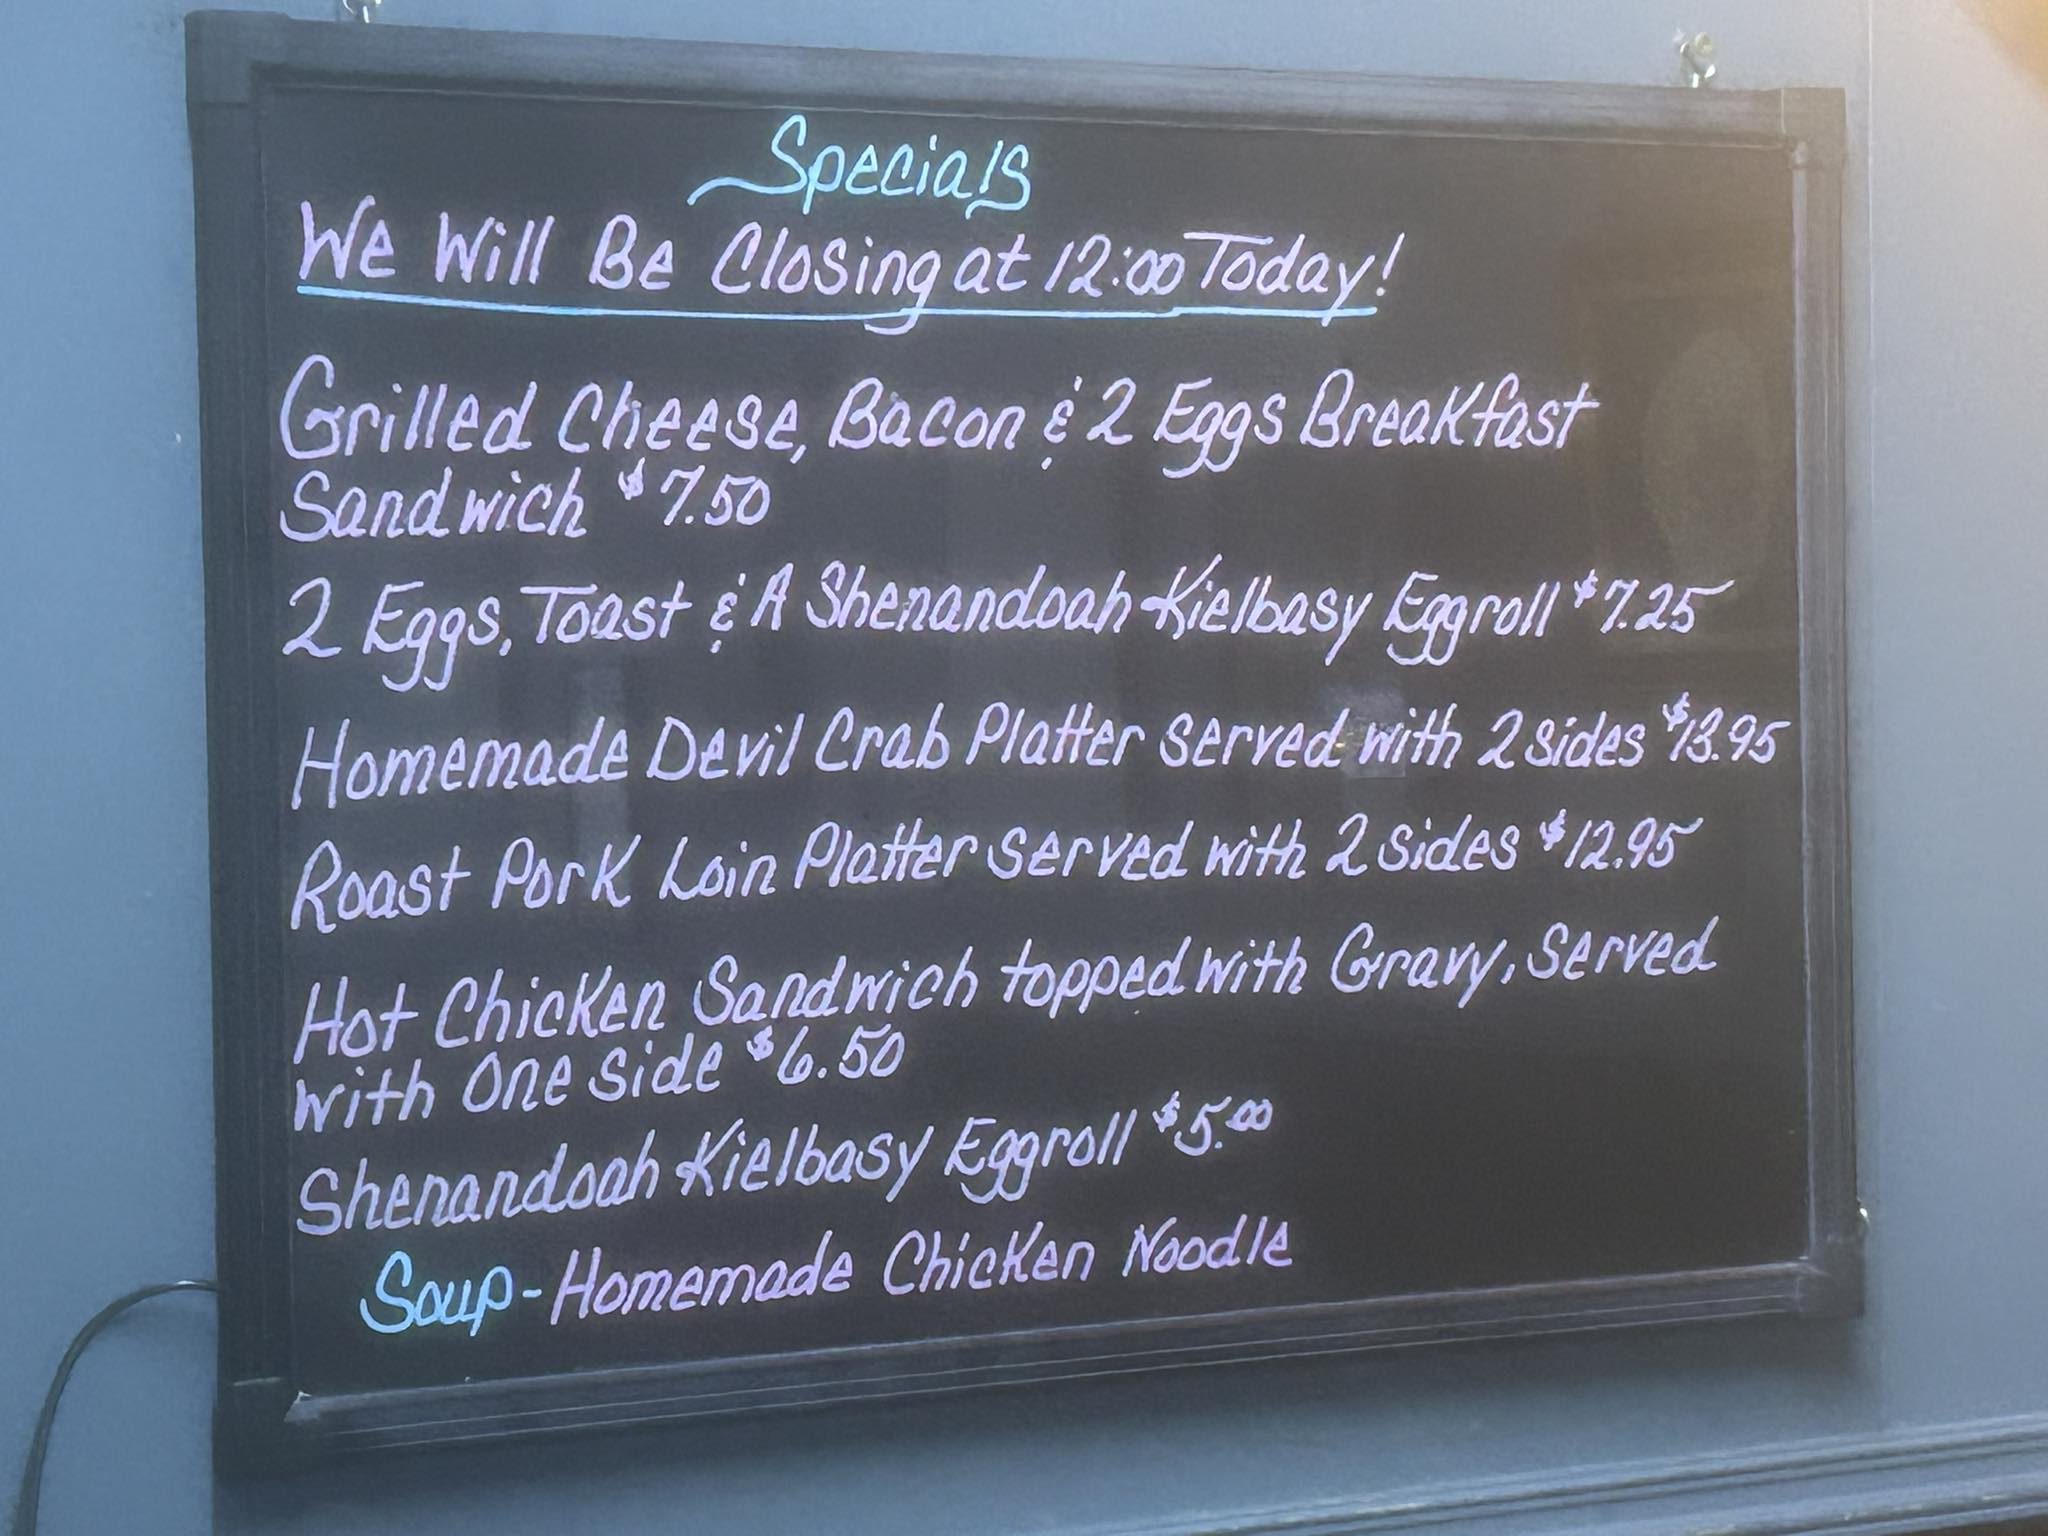 Specials
We Will Be Closing at 12:00 Today!
Grilled Cheese, Bacon & 2 Eggs Breakfast
Sandwich $7.50
2 Eggs, Toast & A Shenandoah Kielbasy Eggroll $7.25
Homemade Devil Crab Platter served with 2 sides $13.95
Roast Pork Loin Platter served with 2 sides $12.95
Hot Chicken Sandwich topped with Gravy, served
with One side $6.50
Shenandoah Kielbasy Eggroll $5.00
Soup - Homemade Chicken Noodle